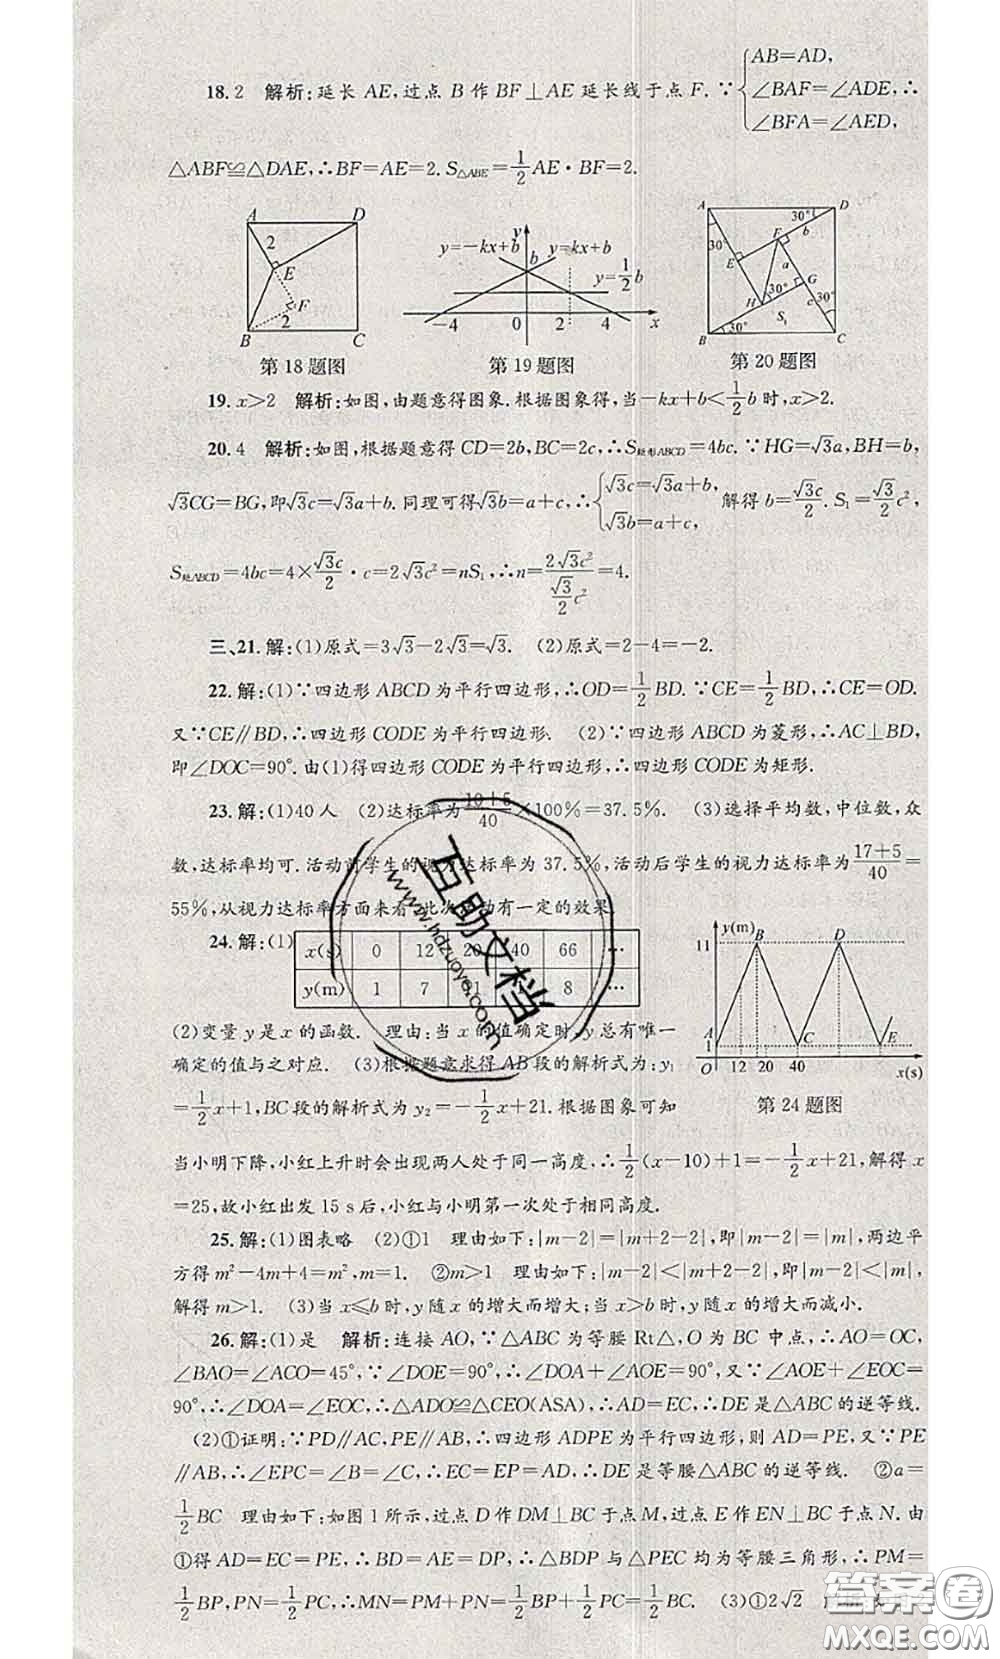 AB=AD,
18.2 解析:延长 AE,过点 B 作 BF⊥AE 延长线于点 F. ∵ ∠BAF=∠ADE, ∴
∠BFA=∠AED,
△ABF≌△DAE,∴BF=AE=2. S△ABE=1/2 AE·BF=2.
A D 2 E F 2 B C
第 18 题图
y y=-kx+b b y=kx+b y=1/2 b -4 0 2 4 x
第 19 题图
A 30° D 30° F b E a G H 30° c 30° B 30° S₁ C
第 20 题图
19. x>2 解析:如图,由题意得图象.根据图象得,当-kx+b<1/2 b 时,x>2.
20. 4 解析:如图,根据题意得 CD=2b,BC=2c,∴S矩形ABCD=4bc. ∵HG=√3a,BH=b,
√3CG=BG,即√3c=√3a+b. 同理可得√3b=a+c,∴ {√3c=√3a+b, √3b=a+c, 解得 b=√3c/2. S₁=√3/2 c²,
S矩ABCD=4bc=4×√3c/2·c=2√3c²=nS₁,∴n=2√3c²/(√3/2 c²)=4.
三、21. 解:(1)原式=3√3-2√3=√3. (2)原式=2-4=-2.
22. 解:(1)∵四边形 ABCD 为平行四边形,∴OD=1/2 BD. ∵CE=1/2 BD,∴CE=OD.
又∵CE∥BD,∴四边形 CODE 为平行四边形. (2)∵四边形 ABCD 为菱形,∴AC⊥BD,
即∠DOC=90°. 由(1)得四边形 CODE 为平行四边形,∴四边形 CODE 为矩形.
23. 解:(1)40 人 (2)达标率为(10+5)/40×100%=37.5%. (3)选择平均数,中位数,众
数,达标率均可. 活动前学生的视力达标率为 37.5%,活动后学生的视力达标率为(17+5)/40=
55%,从视力达标率方面来看,此次活动有一定的效果.
24. 解:(1)
x(s) 0 12 20 40 66 …
y(m) 1 7 11 1 8 …
y(m) 11 B D A 1 C E O 12 20 40 x(s)
第 24 题图
(2)变量 y 是 x 的函数. 理由:当 x 的值确定时,y 总有唯一
确定的值与之对应. (3)根据题意求得 AB 段的解析式为:y₁
=1/2 x+1,BC 段的解析式为 y₂=-1/2 x+21. 根据图象可知
当小明下降,小红上升时会出现两人处于同一高度,∴1/2(x-10)+1=-1/2 x+21,解得 x
=25,故小红出发 15 s 后,小红与小明第一次处于相同高度.
25. 解:(1)图表略 (2)①1 理由如下:|m-2|=|m+2-2|,即|m-2|=|m|,两边平
方得 m²-4m+4=m²,m=1. ②m>1 理由如下:|m-2|<|m+2-2|,即|m-2|<|m|,
解得 m>1. (3)当 x≤b 时,y 随 x 的增大而增大;当 x>b 时,y 随 x 的增大而减小.
26. 解:(1)是 解析:连接 AO,∵△ABC 为等腰 Rt△,O 为 BC 中点,∴AO=OC,
∠BAO=∠ACO=45°,∵∠DOE=90°,∴∠DOA+∠AOE=90°,又∵∠AOE+∠EOC=
90°,∴∠DOA=∠EOC,∴△ADO≌△CEO(ASA),∴AD=EC,∴DE 是△ABC 的逆等线.
(2)①证明:∵PD∥AC,PE∥AB,∴四边形 ADPE 为平行四边形,则 AD=PE,又∵PE
∥AB,∴∠EPC=∠B=∠C,∴EC=EP=AD,∴DE 是等腰△ABC 的逆等线. ②a=
1/2 BC 理由如下:如图 1 所示,过点 D 作 DM⊥BC 于点 M,过点 E 作 EN⊥BC 于点 N. 由
①得 AD=EC=PE,∴BD=AE=DP,∴△BDP 与△PEC 均为等腰三角形,∴PM=
1/2 BP,PN=1/2 PC,∴MN=PM+PN=1/2 BP+1/2 PC=1/2 BC. (3)①2√2
互助文档
www.hdzuoye.com
答案卷
MXQE.COM